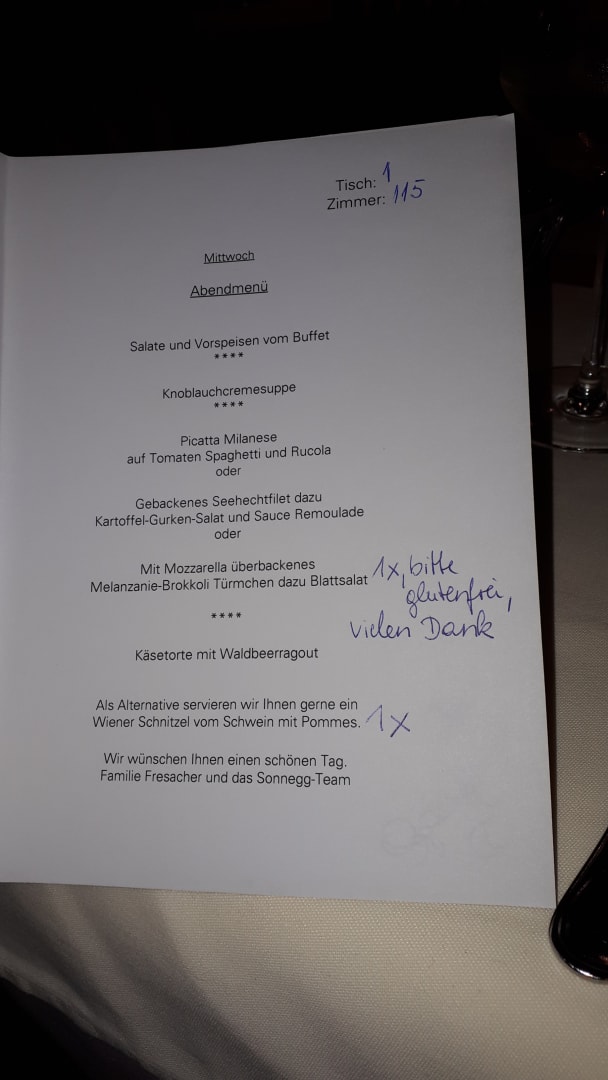 Tisch: 1
Zimmer: 115
Mittwoch
Abendmenü
Salate und Vorspeisen vom Buffet
****
Knoblauchcremesuppe
****
Picatta Milanese
auf Tomaten Spaghetti und Rucola
oder
Gebackenes Seehechtfilet dazu
Kartoffel-Gurken-Salat und Sauce Remoulade
oder
Mit Mozzarella überbackenes
Melanzanie-Brokkoli Türmchen dazu Blattsalat
1x, bitte
glutenfrei,
vielen Dank
****
Käsetorte mit Waldbeerragout
Als Alternative servieren wir Ihnen gerne ein
Wiener Schnitzel vom Schwein mit Pommes. 1x
Wir wünschen Ihnen einen schönen Tag.
Familie Fresacher und das Sonnegg-Team